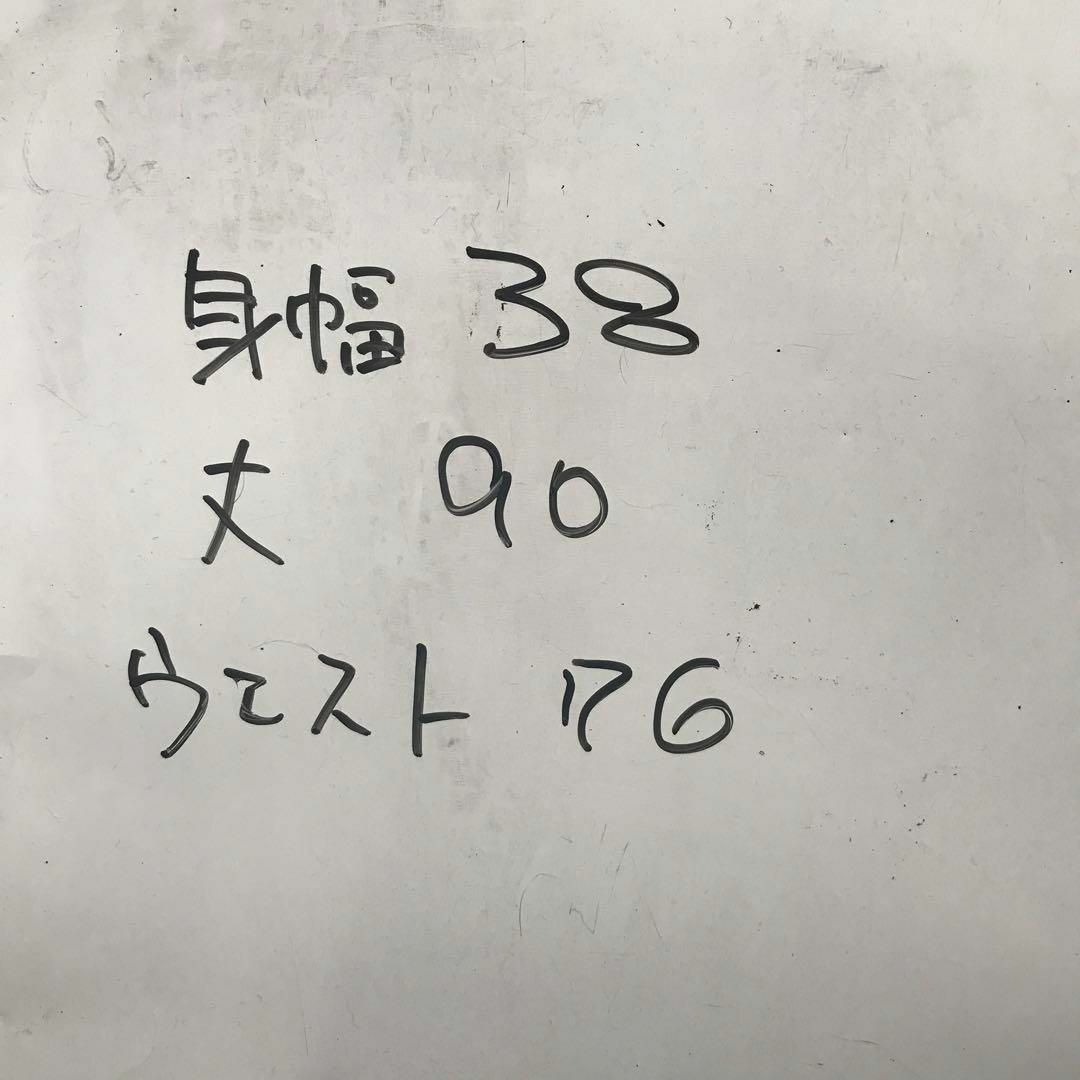 身幅 38
丈 90
ウエスト 76